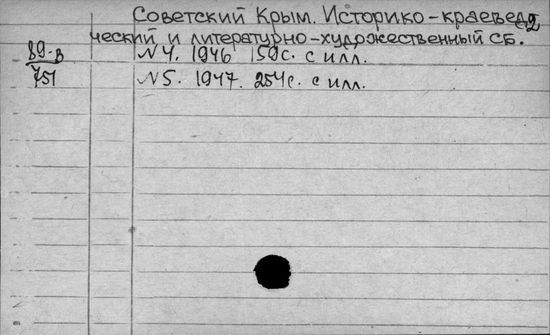 Советский Крым. Историко-краевед
2
ческий и литературно-художественный сб.
89-в
751
N 4. 1946 159с. с илл.
N 5. 1947. 254с. с илл.